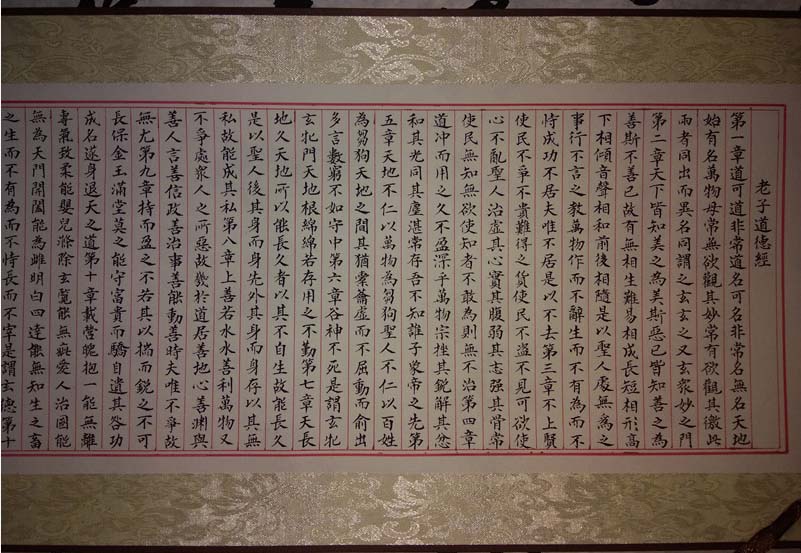 老子道德經
第一章道可道非常道名可名非常名無名天地
始有名萬物母常無欲觀其妙常有欲觀其徼此
兩者同出而異名同謂之玄玄之又玄衆妙之門
第二章天下皆知美之為美斯惡已皆知善之為
善斯不善已故有無相生難易相成長短相形高
下相傾音聲相和前後相隨是以聖人處無為之
事行不言之教萬物作而不辭生而不有為而不
恃成功不居夫唯不居是以不去第三章不上賢
使民不爭不貴難得之貨使民不盜不見可欲使
心不亂聖人治虛其心實其腹弱其志强其骨常
使民無知無欲使知者不敢為則無不治第四章
道冲而用之久不盈深乎萬物宗挫其銳解其忿
和其光同其塵湛常存吾不知誰子象帝之先第
五章天地不仁以萬物為芻狗聖人不仁以百姓
為芻狗天地之間其猶橐籥虛而不屈動而俞出
多言數窮不如守中第六章谷神不死是謂玄牝
玄牝門天地根綿綿若存用之不勤第七章天長
地久天地所以能長久者以其不自生故能長久
是以聖人後其身而身先外其身而身存以其無
私故能成其私第八章上善若水水善利萬物又
不爭處衆人之所惡故幾於道居善地心善淵與
善人言善信政善治事善能動善時夫唯不爭故
無尤第九章持而盈之不若其以揣而銳之不可
長保金玉滿堂莫之能守富貴而驕自遺其咎功
成名遂身退天之道第十章載營魄抱一能無離
專氣致柔能嬰兒滌除玄覽能無疵愛人治國能
無為天門開闔能為雌明白四達能無知生之畜
之生而不有為而不恃長而不宰是謂玄德第十